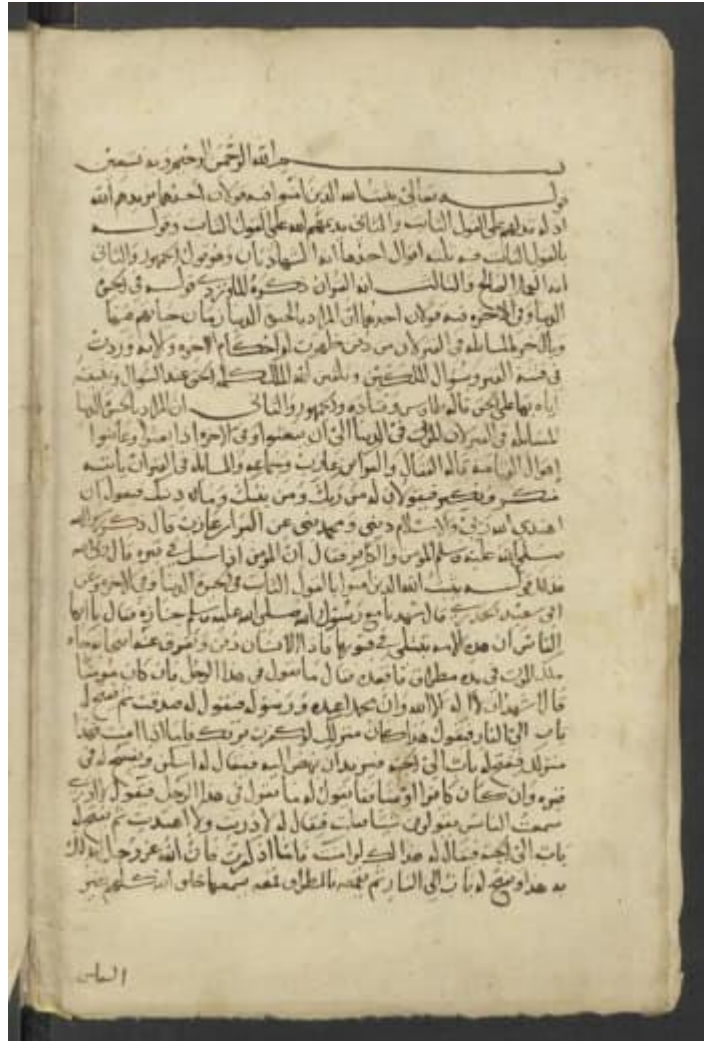 بسم الله الرحمن الرحيم وبه نستعين
قوله تعالى يثبت الله الذين امنوا فيه قولان احدهما يريدهم الله
على القول الثابت والثاني الله على القول الثابت وقوله
بالقول الثابت فيه ثلثه اقوال احدها انه الشهادتان وهو قول الجمهور والثاني
انه العمل الصالح والثالث انه القران ذكره الماوردي قوله في الحيوة
الدنيا وفي الاخره فيه قولان احدهما ان المراد بالحيوة الدنيا زمان حياتهم فيها
وبالاخره المسائله في القبر لان من دفن ظهرت له احكام الاخره ولانه وردت
في فتنة القبر وسؤال الملكين وتلقين الله الملك كلمة الحق عند السؤال
اياه بها على الحق قاله طاوس وقتاده والجمهور والثاني ان المراد بالحيوة الدنيا
المسائله في القبر لان المؤمن في الدنيا الى ان يبعثوا وفي الاخره اذا بعثوا وعاينوا
اهوال القيامة قاله القفال والبراء بن عازب وجماعه والمسائله في القبر ان ياتيه
منكر ونكير فيقولان له من ربك ومن نبيك وما دينك فيقول ان
اهتدى الله ربي والاسلام ديني ومحمد نبي عن البراء بن عازب قال ذكر رسول الله
صلى الله عليه وسلم المؤمن والكافر فقال ان المؤمن اذا سئل في قبره قال
فذلك قوله يثبت الله الذين امنوا بالقول الثابت في الحيوة الدنيا وفي الاخره وعن
ابي سعيد الخدري قال شهدنا مع رسول الله صلى الله عليه وسلم جنازه فقال يا ايها
الناس ان هذه الامه تبتلى في قبورها فاذا الانسان دفن وتفرق عنه اصحابه جاه
ملك الموت في يده مطراق فاقعده فقال ما تقول في هذا الرجل فان كان مؤمنا
قال اشهد ان لا اله الا الله وان محمدا عبده ورسوله فيقول له صدقت ثم يفتح له
باب الى النار فيقول هذا كان منزلك لو كفرت بربك فاما اذا امنت فهذا
منزلك فيفتح له باب الى الجنه فيريد ان ينهض اليه فيقال له اسكن ويفسح له في
قبره وان كان كافرا او منافقا يقول له ما تقول في هذا الرجل فيقول لا ادري
سمعت الناس يقولون شيا فقلت فيقال له لا دريت ولا اهتديت ثم يفتح له
باب الى الجنه فيقال له هذا لك لو امنت فاما اذ كفرت فان الله عز وجل ابدلك
به هذا ويفتح له باب الى النار ثم يقمعه بالمطراق قمعه يسمعها خلق الله كلهم غير